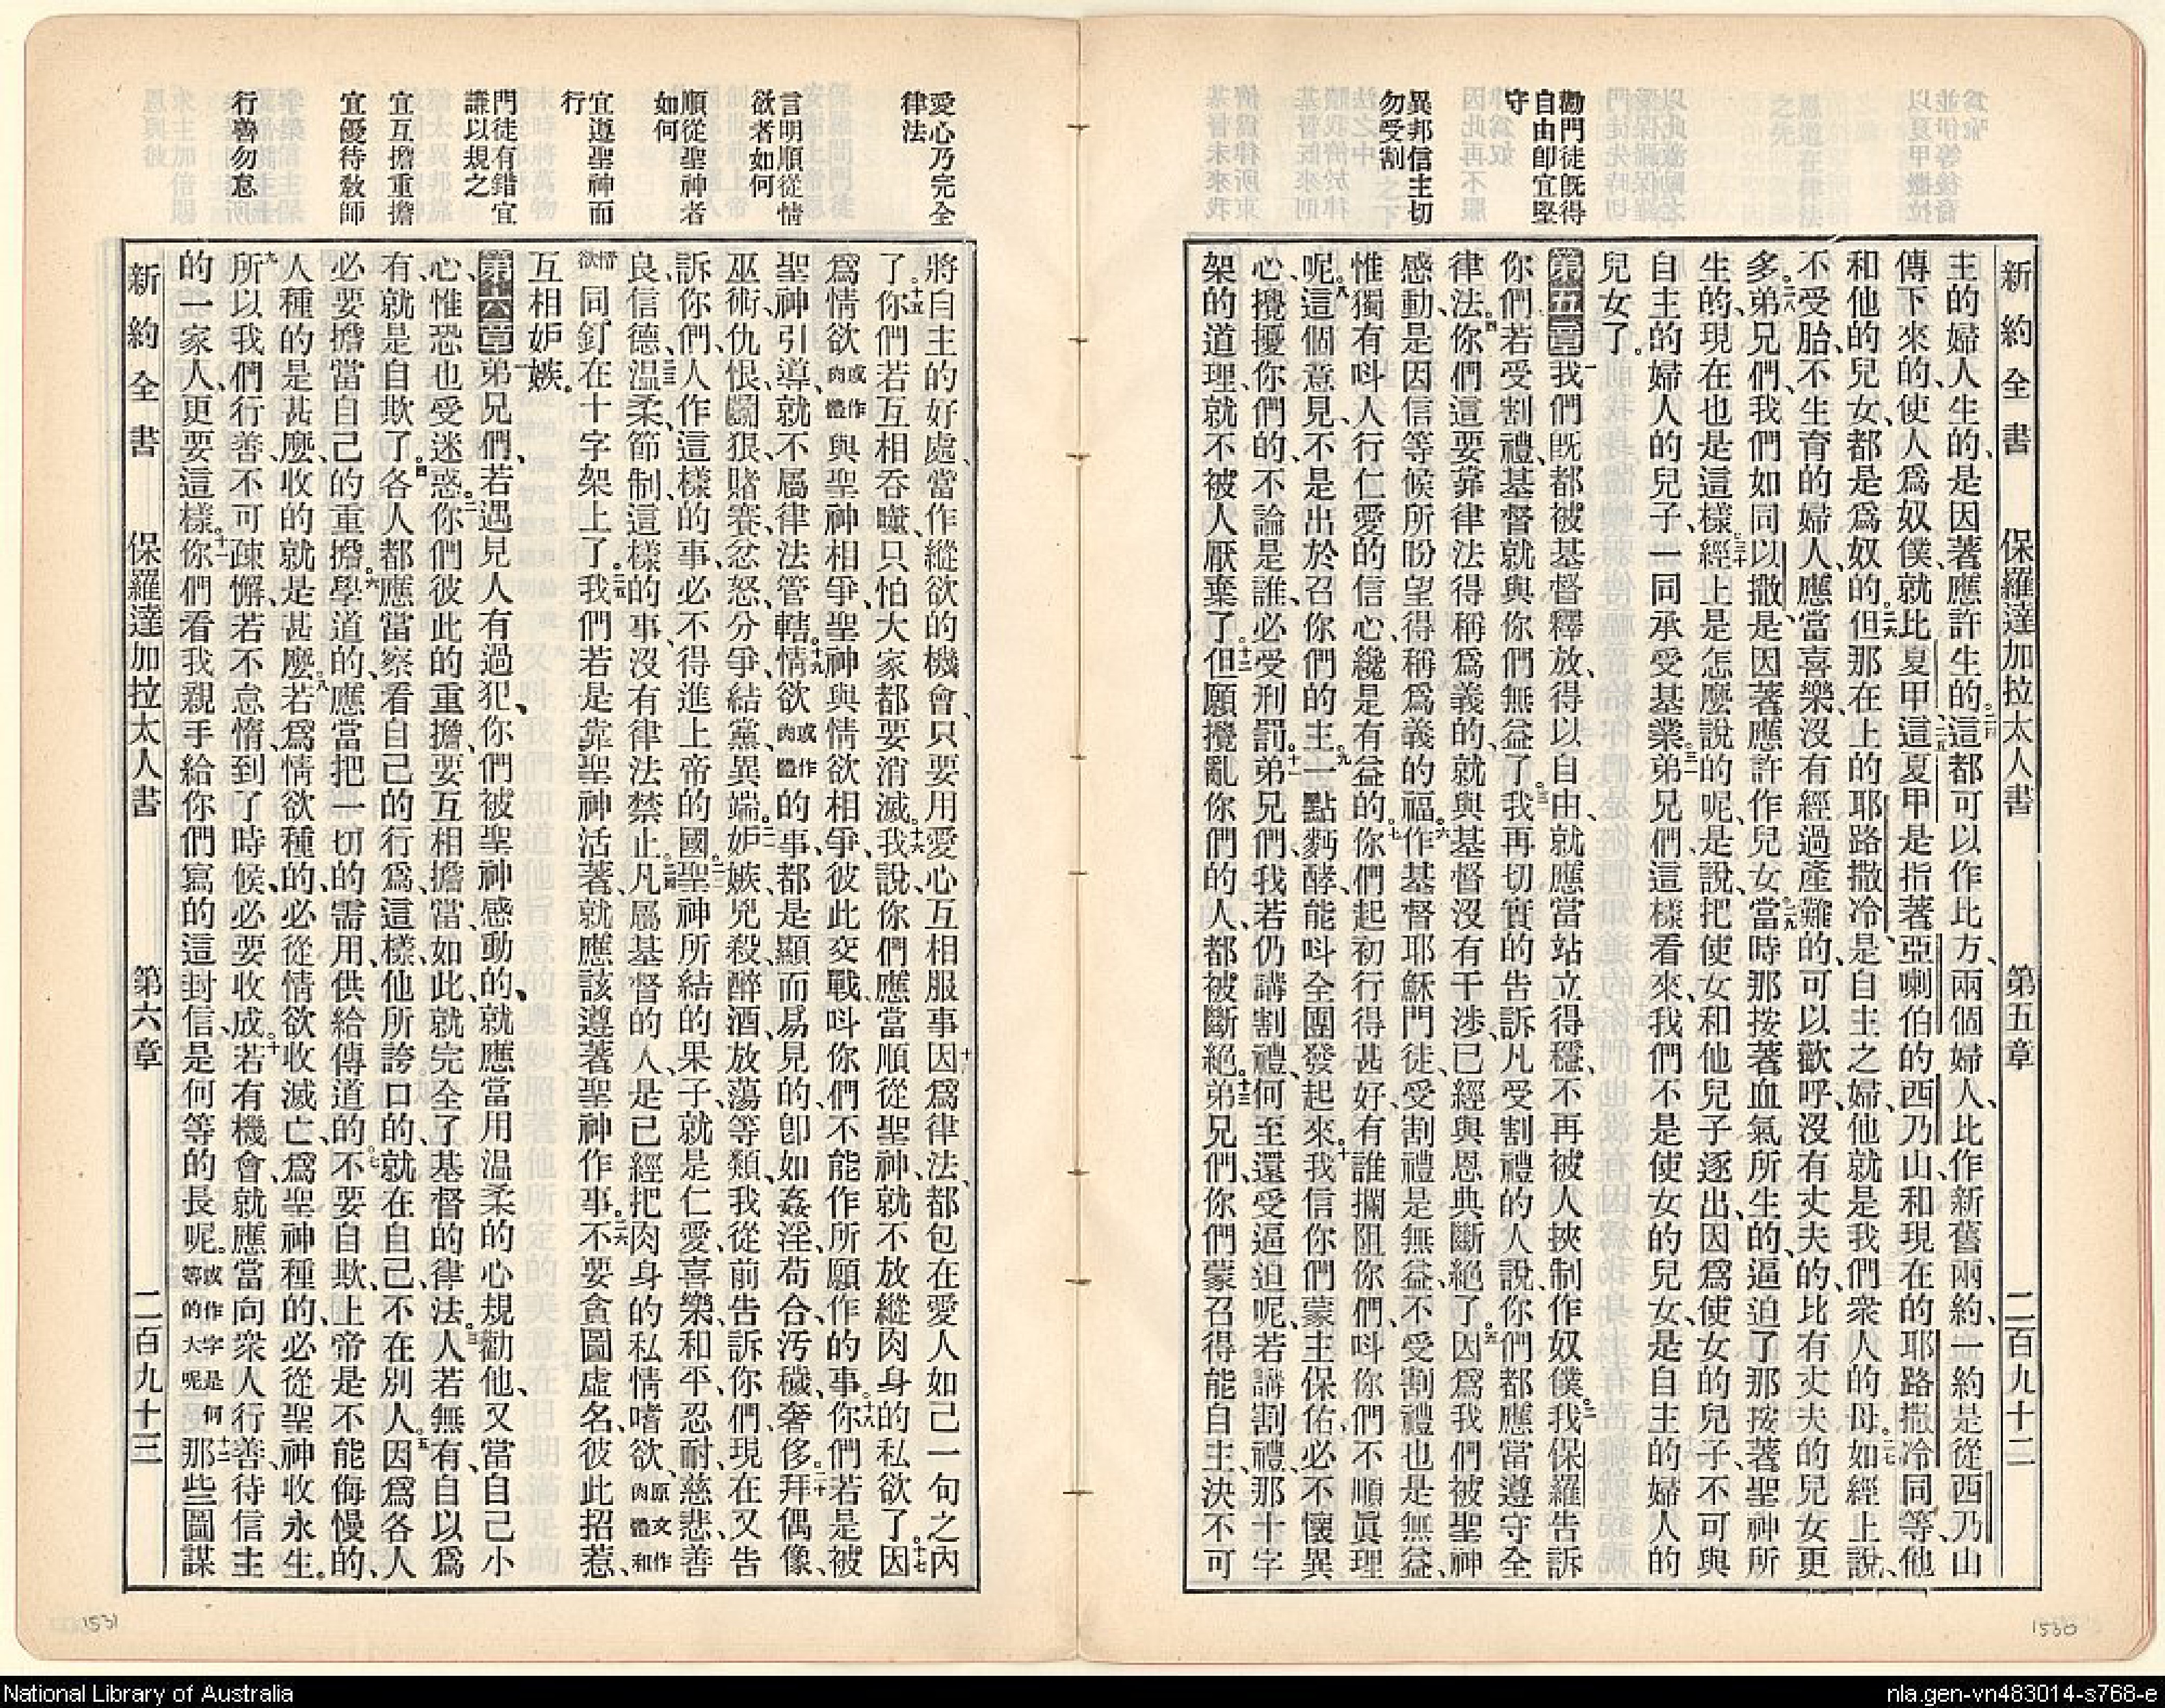 新約全書　保羅達加拉太人書　第五章　二百九十二
勸門徒既得
自由卽宜堅
守
異邦信主切
勿受割
主的婦人生的、是因著應許生的。二十四這都可以作比方、兩個婦人、比作新舊兩約、一約是從西乃山
傳下來的、使人爲奴僕、就比夏甲。二十五這夏甲是指著亞喇伯的西乃山、和現在的耶路撒冷同等、他
和他的兒女、都是爲奴的。二十六但那在上的耶路撒冷、是自主之婦、他就是我們衆人的母。二十七如經上說、
不受胎、不生育的婦人、應當喜樂、沒有經過產難的、可以歡呼、沒有丈夫的、比有丈夫的兒女更
多。二十八弟兄們、我們如同以撒、是因著應許作兒女。二十九當時那按著血氣所生的、逼迫了那按著聖神所
生的、現在也是這樣。三十經上是怎麼說的呢、是說、把使女和他兒子逐出、因爲使女的兒子、不可與
自主的婦人的兒子、一同承受基業。三十一弟兄們、這樣看來、我們不是使女的兒女、是自主的婦人的
兒女了。
第五章一我們旣都被基督釋放、得以自由、就應當站立得穩、不再被人挾制作奴僕。二我保羅告訴
你們、若受割禮、基督就與你們無益了。三我再切實的告訴凡受割禮的人說、你們都應當遵守全
律法。四你們這要靠律法得稱爲義的、就與基督沒有干涉、已經與恩典斷絕了。五因爲我們被聖神
感動、是因信等候所盼望得稱爲義的福。六作基督耶穌門徒、受割禮是無益、不受割禮也是無益、
惟獨有呌人行仁愛的信心、纔是有益的。七你們起初行得甚好、有誰攔阻你們、呌你們不順眞理
呢。八這個意見、不是出於召你們的主。九一點麪酵、能呌全團發起來。十我信你們蒙主保佑、必不懷異
心、攪擾你們的、不論是誰、必受刑罰。十一弟兄們、我若仍講割禮、何至還受逼迫呢、若講割禮、那十字
架的道理、就不被人厭棄了。十二但願攪亂你們的人、都被斷絕。十三弟兄們、你們蒙召得能自主、決不可
1530
愛心乃完全
律法
言明順從情
欲者如何
順從聖神者
如何
宜遵聖神而
行
門徒有錯宜
謙以規之
宜互擔重擔
宜優待敎師
行善勿怠
將自主的好處、當作縱欲的機會、只要用愛心互相服事。十四因爲律法、都包在愛人如己一句之內
了。十五你們若互相吞嚙、只怕大家都要消滅。十六我說你們應當順從聖神、就不放縱肉身的私欲了。十七因
爲情欲或作肉體與聖神相爭、聖神與情欲相爭、彼此交戰、呌你們不能作所願作的事。十八你們若是被
聖神引導、就不屬律法管轄。十九情欲或作肉體的事、都是顯而易見的、卽如姦淫、苟合、汚穢、奢侈、二十拜偶像、
巫術、仇恨、鬭狠、賭賽、忿怒、分爭、結黨、異端、二十一妒嫉、兇殺、醉酒、放蕩等類、我從前告訴你們、現在又告
訴你們、人作這樣的事、必不得進上帝的國。二十二聖神所結的果子、就是仁愛、喜樂、和平、忍耐、慈悲、善
良、信德、二十三温柔、節制、這樣的事、沒有律法禁止。二十四凡屬基督的人、是已經把肉身的私情嗜欲、原文作肉體和
情欲同釘在十字架上了。二十五我們若是靠聖神活著、就應該遵著聖神作事。二十六不要貪圖虛名、彼此招惹、
互相妒嫉。
第六章一弟兄們、若遇見人有過犯、你們被聖神感動的、就應當用温柔的心規勸他、又當自己小
心、惟恐也受迷惑。二你們彼此的重擔、要互相擔當、如此、就完全了基督的律法。三人若無有、自以爲
有、就是自欺了。四各人都應當察看自己的行爲、這樣、他所誇口的、就在自己、不在別人。五因爲各人
必要擔當自己的重擔。六學道的、應當把一切的需用、供給傳道的。七不要自欺、上帝是不能侮慢的、
人種的是甚麽、收的就是甚麽。八若爲情欲種的、必從情欲收滅亡、爲聖神種的、必從聖神收永生。
九所以我們行善、不可疎懈、若不怠惰、到了時候、必要收成。十若有機會、就應當向衆人行善、待信主
的一家人、更要這樣。十一你們看我親手給你們寫的這封信、是何等的長呢。或作字是何等的大呢十二那些圖謀
新約全書　保羅達加拉太人書　第六章　二百九十三
1531
National Library of Australia
nla.gen-vn483014-s768-e